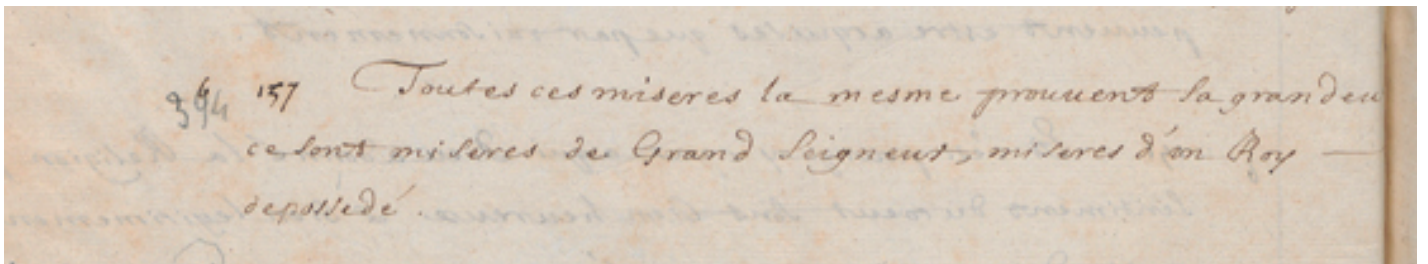 394 157 Toutes ces miseres la mesme prouuent sa grandeu
ce sont miseres de Grand Seigneur, miseres d'un Roy —
depossedé.